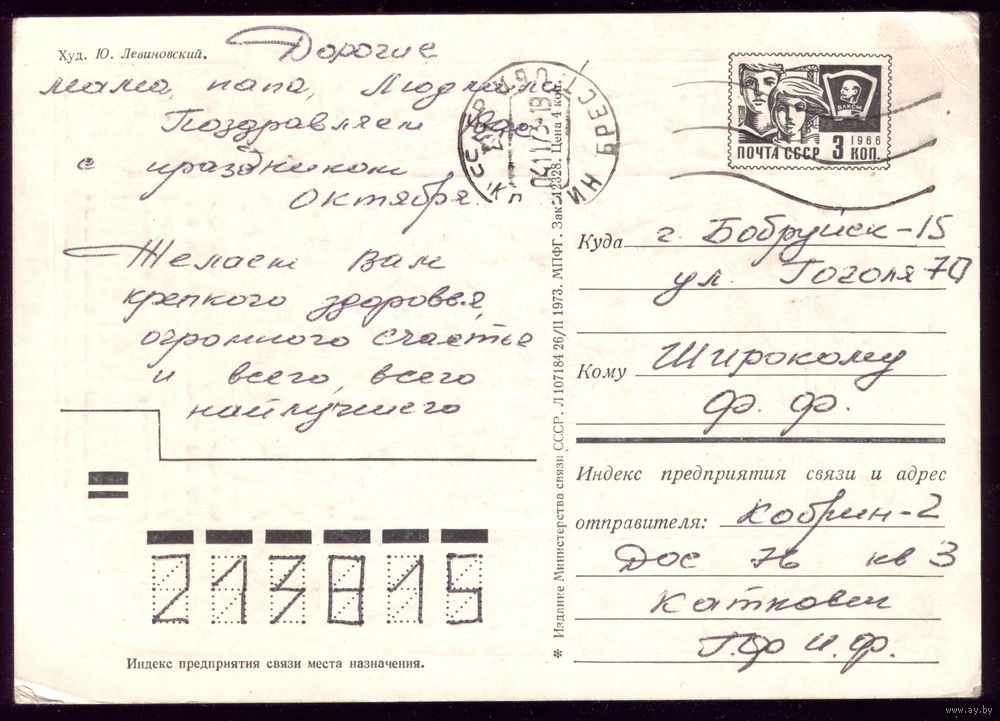 Худ. Ю. Левиновский.
Дорогие
мама, папа, Людмила
Поздравляем Вас
с праздником
октября.
Желаем Вам
крепкого здоровья,
огромного счастья
и всего, всего
найлучшего
213815
Индекс предприятия связи места назначения.
* Издание Министерства связи СССР. Л 107184 26/II 1973. МПФГ. Зак. 12328. Цена 4 коп.
СССР
БРЕСТ
041173-19
ВЛКСМ
1966
ПОЧТА СССР 3 КОП.
Куда г. Бобруйск-15
ул. Гоголя
Кому Широкому
Ф. Ф.
Индекс предприятия связи и адрес
отправителя: Кобрин-2
Дос 76 кв 3
Каткович
www.ay.by